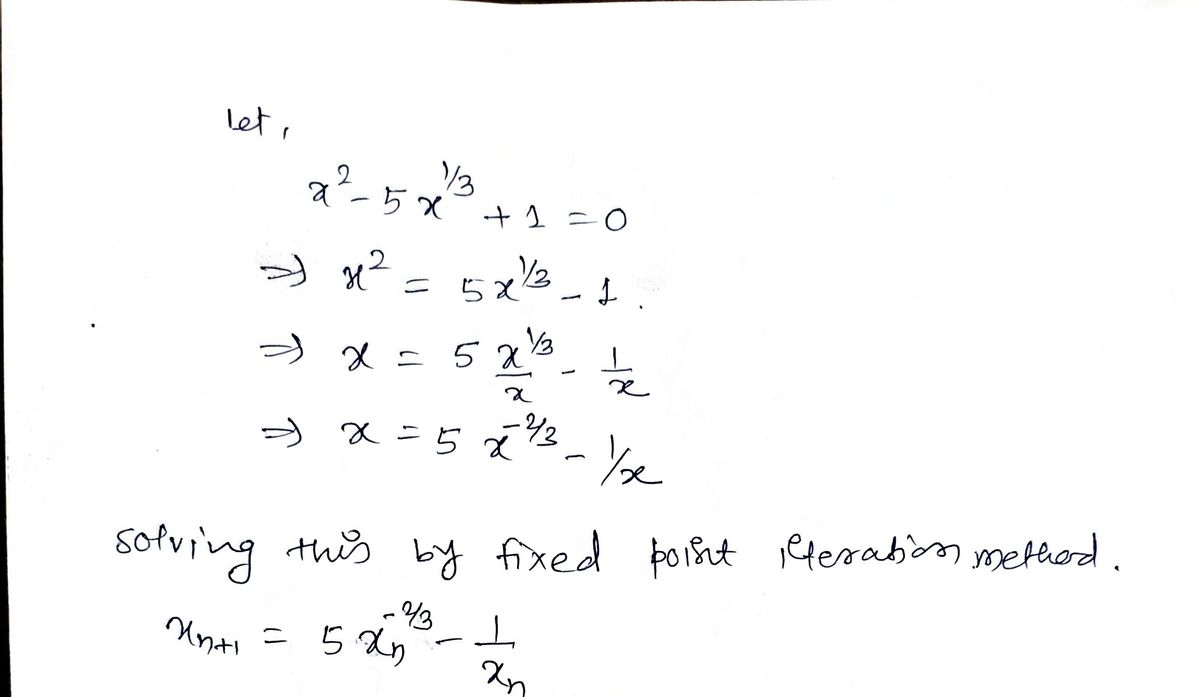 Let,
x² - 5x^1/3 + 1 = 0
⇒ x² = 5x^1/3 - 1.
⇒ x = 5 x^1/3/x - 1/x
⇒ x = 5 x^-2/3 - 1/x
solving this by fixed point iteration method.
xₙ₊₁ = 5 xₙ^-2/3 - 1/xₙ